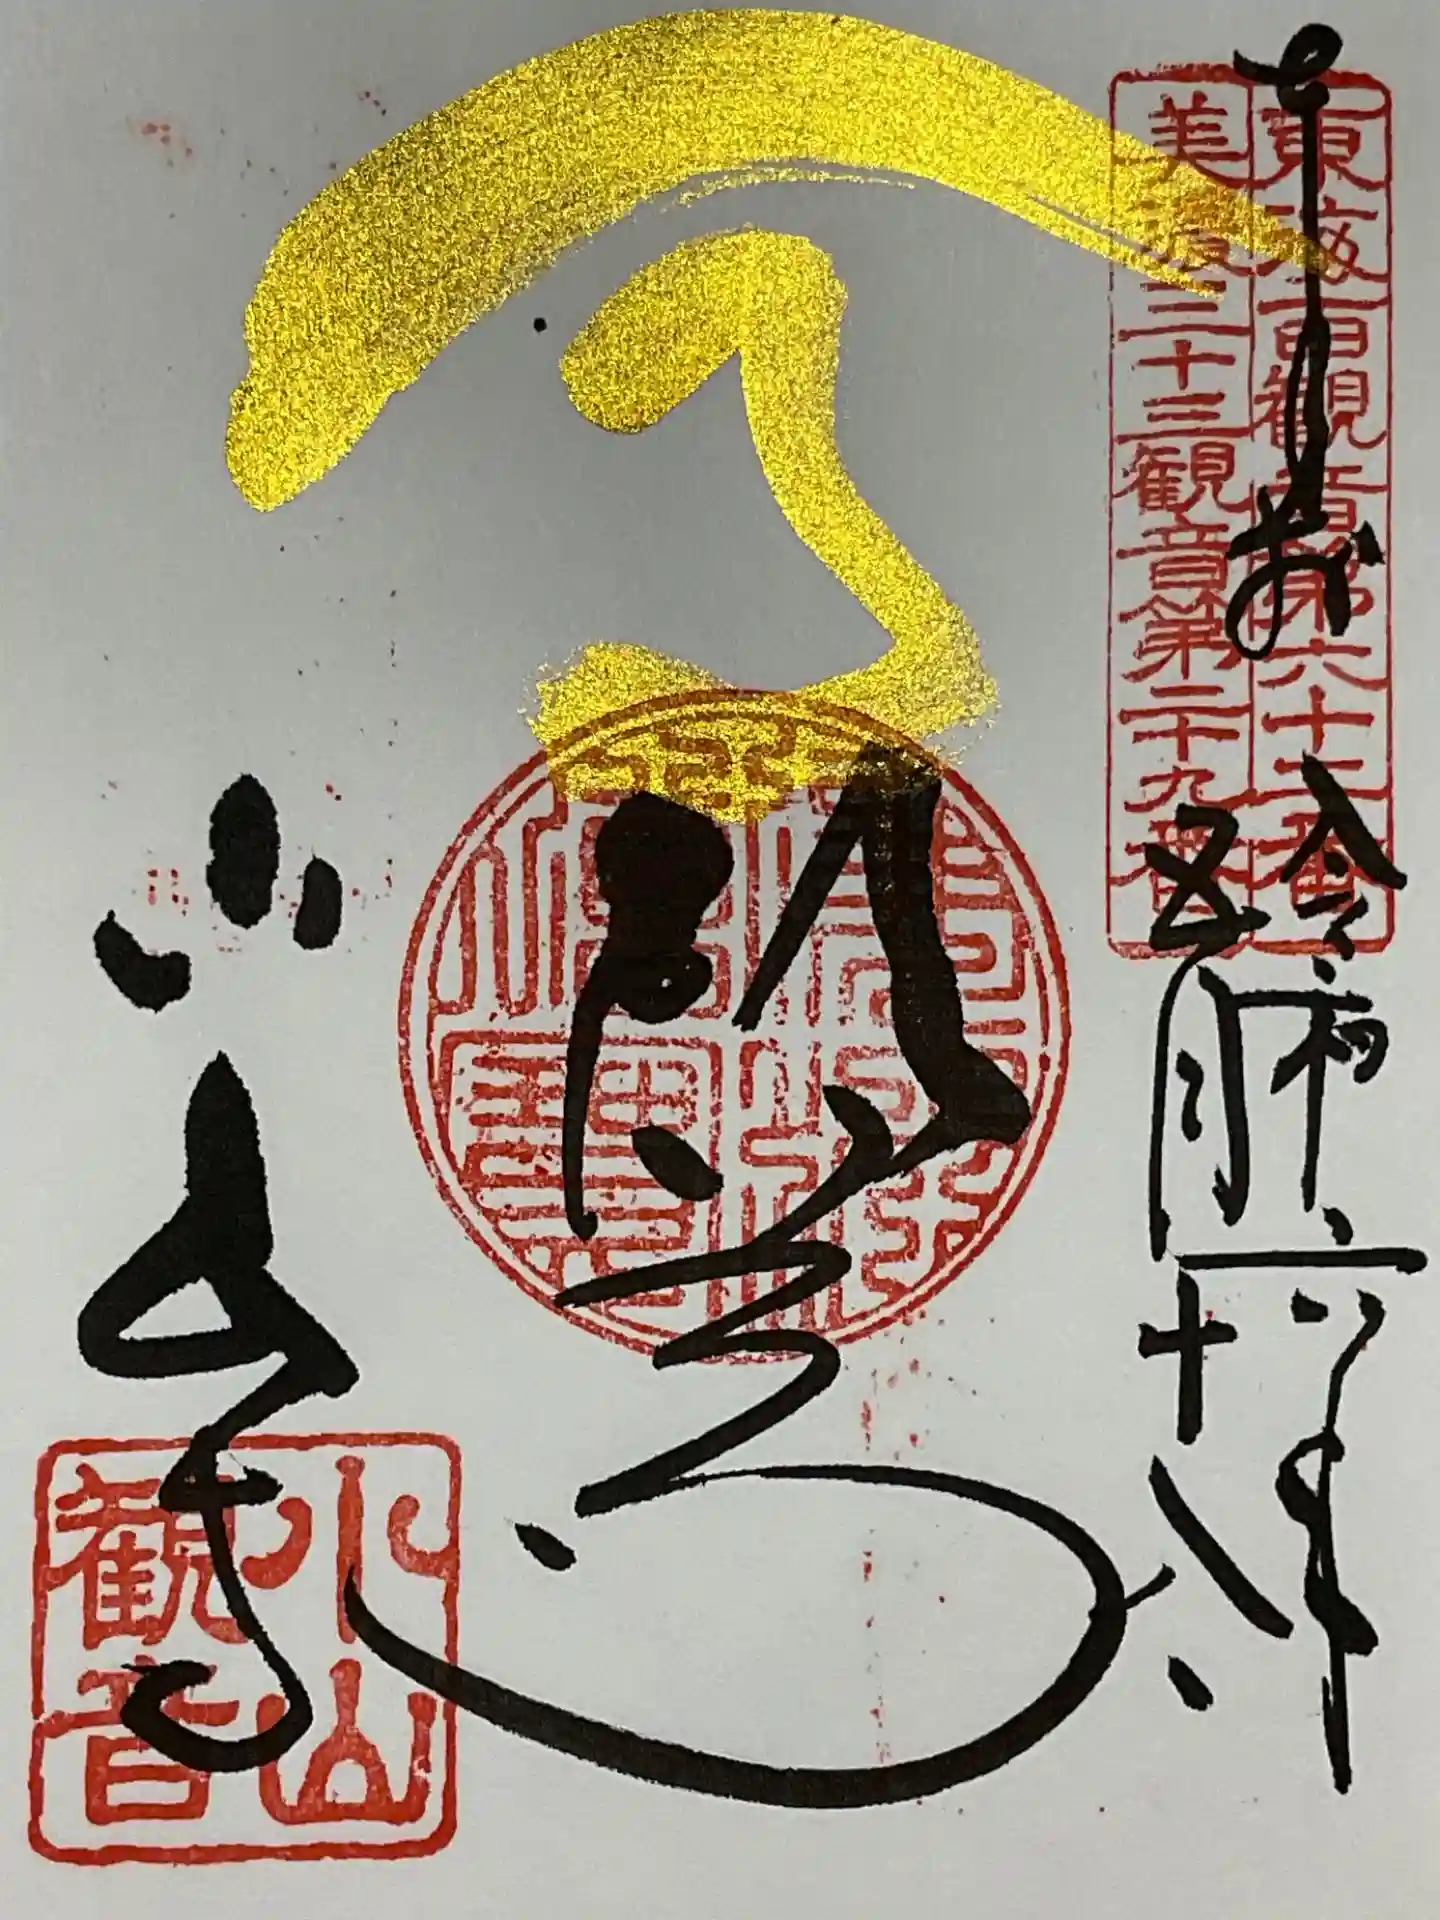 東海百観音第六十二番
美濃三十三観音第二十九番
奉拝
令和六年
五月十八日
小山寺
小山
観音